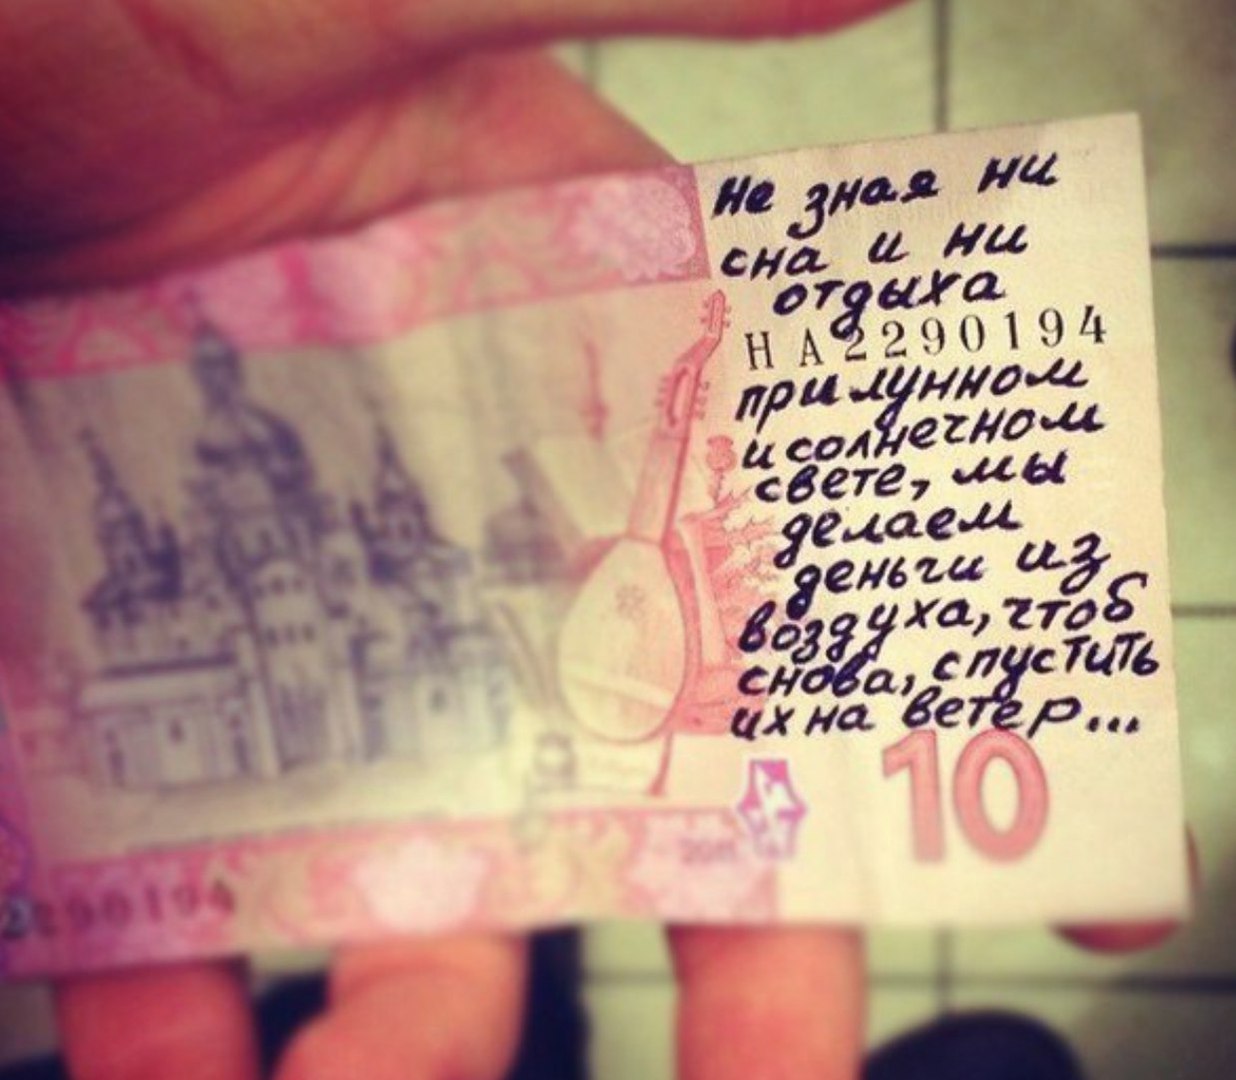 Не зная ни
сна и ни
отдыха
НА2290194
при лунном
и солнечном
свете, мы
делаем
деньги из
воздуха, чтоб
снова, спустить
их на ветер...
10
2290194